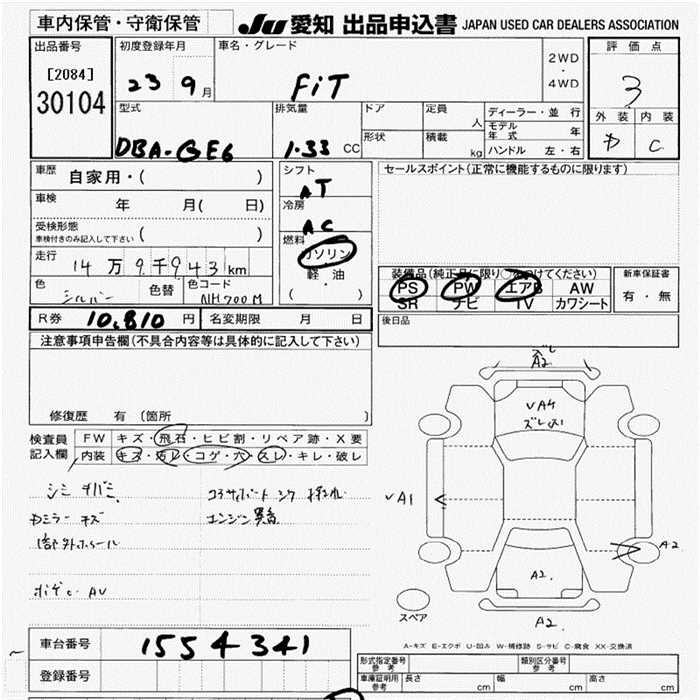 車内保管・守衛保管
JU 愛知 出品申込書 JAPAN USED CAR DEALERS ASSOCIATION
出品番号
[2084]
30104
初度登録年月
23 9月
車名・グレード
FiT
2WD
・
4WD
評価点
3
外装 内装
C
型式
DBA-GE6
排気量
1.33 CC
ドア
定員
人
形状
積載
kg
ディーラー・並行
モデル年式 年
ハンドル 左・右
車歴
自家用・( )
車検
年 月( 日)
受検形態
車検付きのみ記入して下さい ( )
走行
14万9千943km
色
シルバー
色替
色コード
NH700M
シフト
AT
冷房
AC
燃料
ガソリン
・
軽・油
( )
セールスポイント(正常に機能するものに限ります)
装備品(純正品に限り○をつけてください)
PS PW エアB AW
SR ナビ TV カワシート
新車保証書
有・無
後日品
R券 10,810 円
名変期限 月 日
注意事項申告欄(不具合内容等は具体的に記入して下さい)
修復歴 有(箇所 )
検査員
記入欄
FW キズ・飛石・ヒビ割・リペア跡・X要
内装 キズ・汚レ・コゲ・穴・スレ・キレ・破レ
シミ
エンジン異音
A2
VA4
ズレ
VA1
A2
A2.
A2.
スペア
A-キズ E-エクボ U-凹み W-補修跡 S-サビ C-腐食 XX-交換済
車台番号
1554341
登録番号
型式指定番号
参考
類別区分番号
参考
車庫証明用
参考
長さ cm
幅 cm
高さ cm